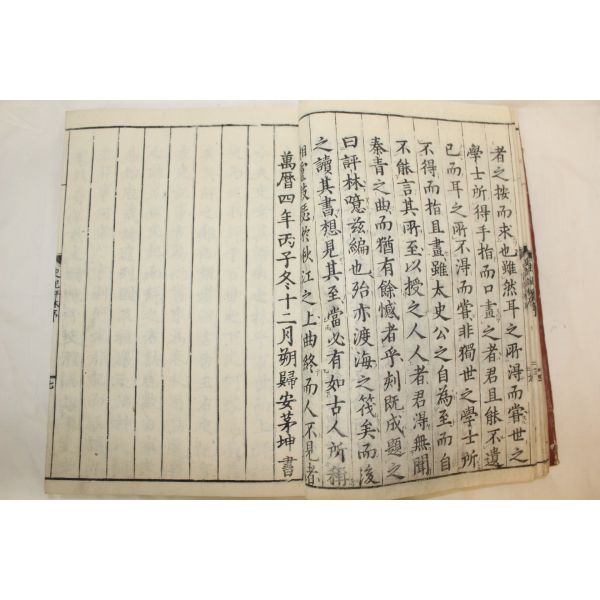 者之按而求也雖然耳之所得而嘗世之
學士所得手指而口畫之者君且能不遺
已而耳之所不得而嘗非獨世之學士所
不得而指且畫雖太史公之自為至而自
不能言其所至以授之人人者君得無聞
秦青之曲而猶有餘憾者乎刻既成題之
曰評林噫玆編也殆亦渡海之筏矣而後
之讀其書想見其至當必有如古人所稱
湘靈鼓瑟於秋江之上曲終而人不見者
萬曆四年丙子冬十二月朔歸安茅坤書
史記評林序
七